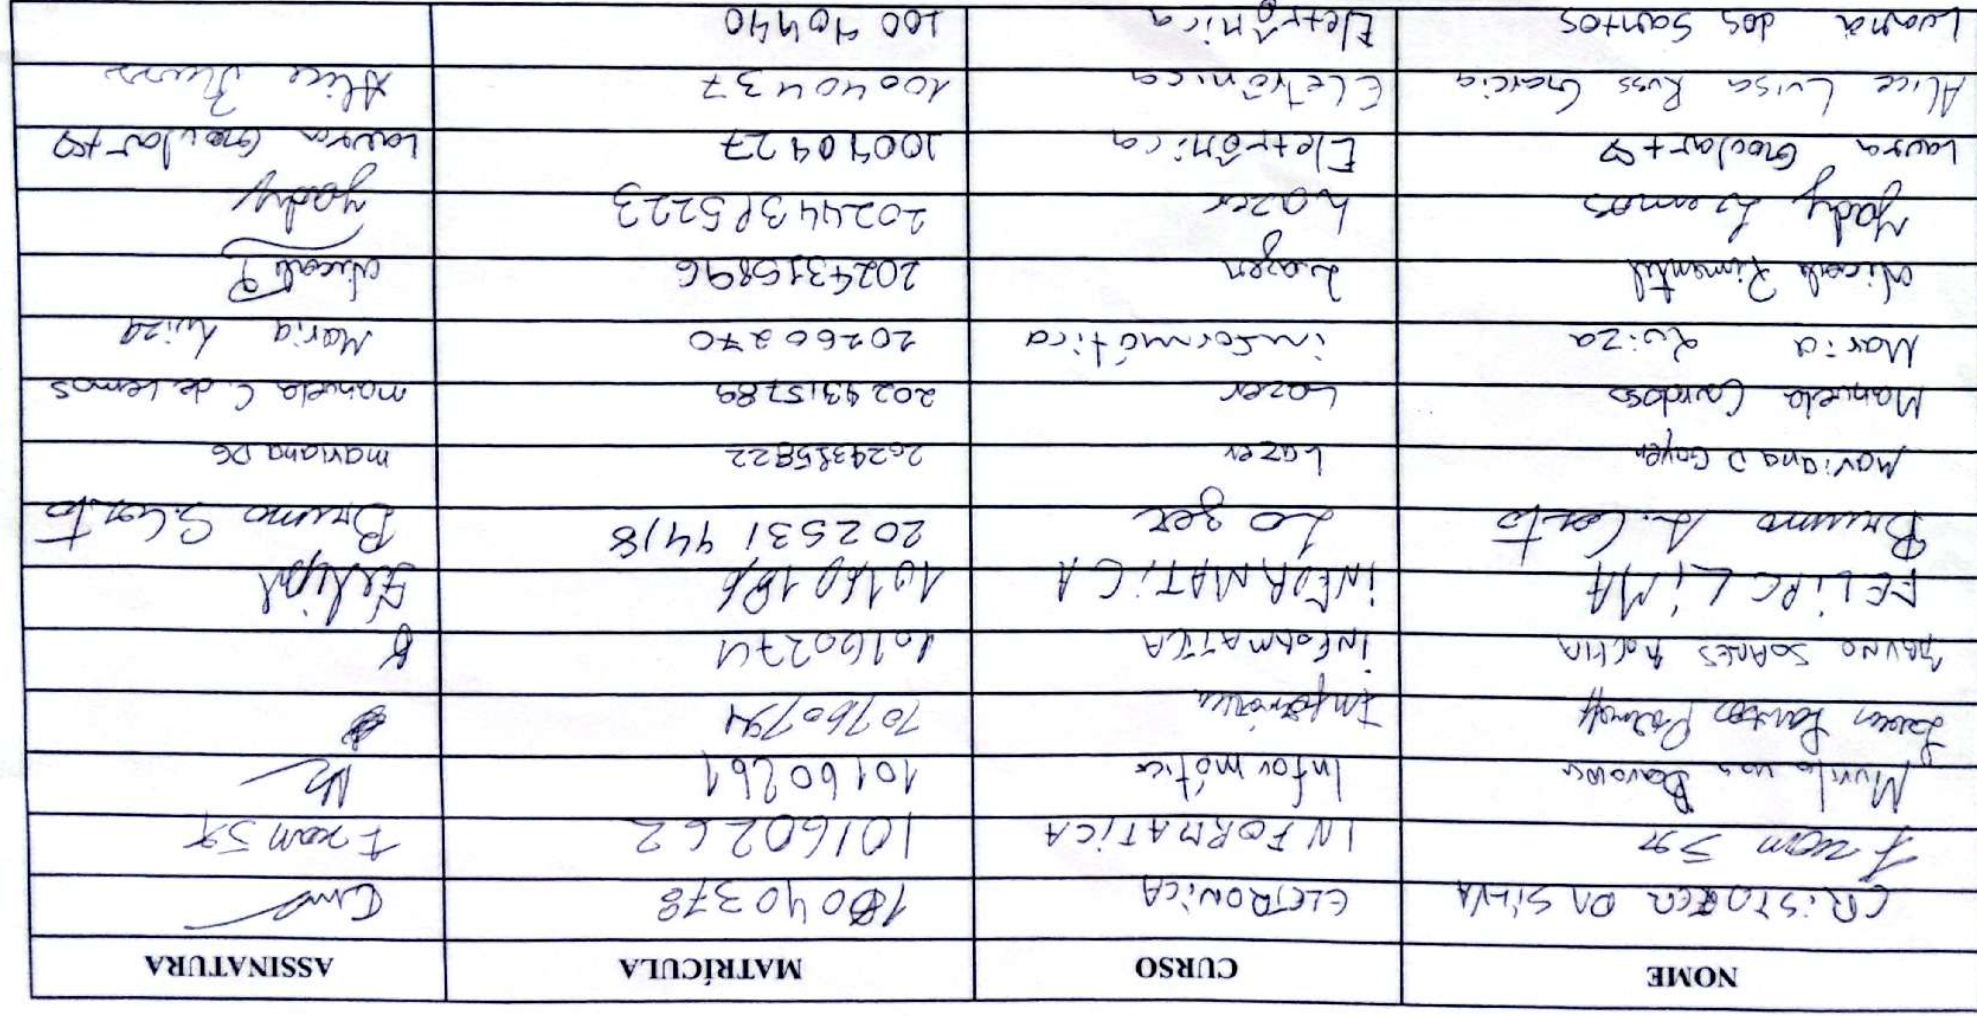 NOME CURSO MATRÍCULA ASSINATURA
CRISTOFER DA SILVA ELETRONICA 10040378
INFORMATICA 10160262
Murilo Informática 10160261
Santos
BRUNO SOARES INFORMATICA 10160274
FELIPE LIMA INFORMATICA 10160186 Felipe
Bruno S. Costa Lazer 2025319418 Bruno S. Costa
Mariana D Gayer Lazer 2024315822 mariana DG
Manuela Cardoso Lazer 2024315789 manuela C. de Lemos
Maria Luiza informática 20260270 Maria Luiza
Nicole Pimentel Lazer 2024315896 Nicole P
Yady Lemos Lazer Yady
Laura Goulart Eletrônica 10040427 Laura Goulart
Alice Luisa Russ Garcia Eletrônica 10040437 Alice Russ
Luana dos Santos Eletrônica 10040440